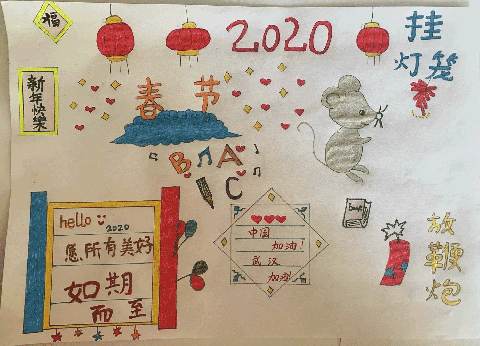 福
2020
挂
灯笼
新年快樂
春节
B A
C
hello 2020
愿所有美好
如期
而至
中国
加油!
武汉
加油!
放
鞭
炮